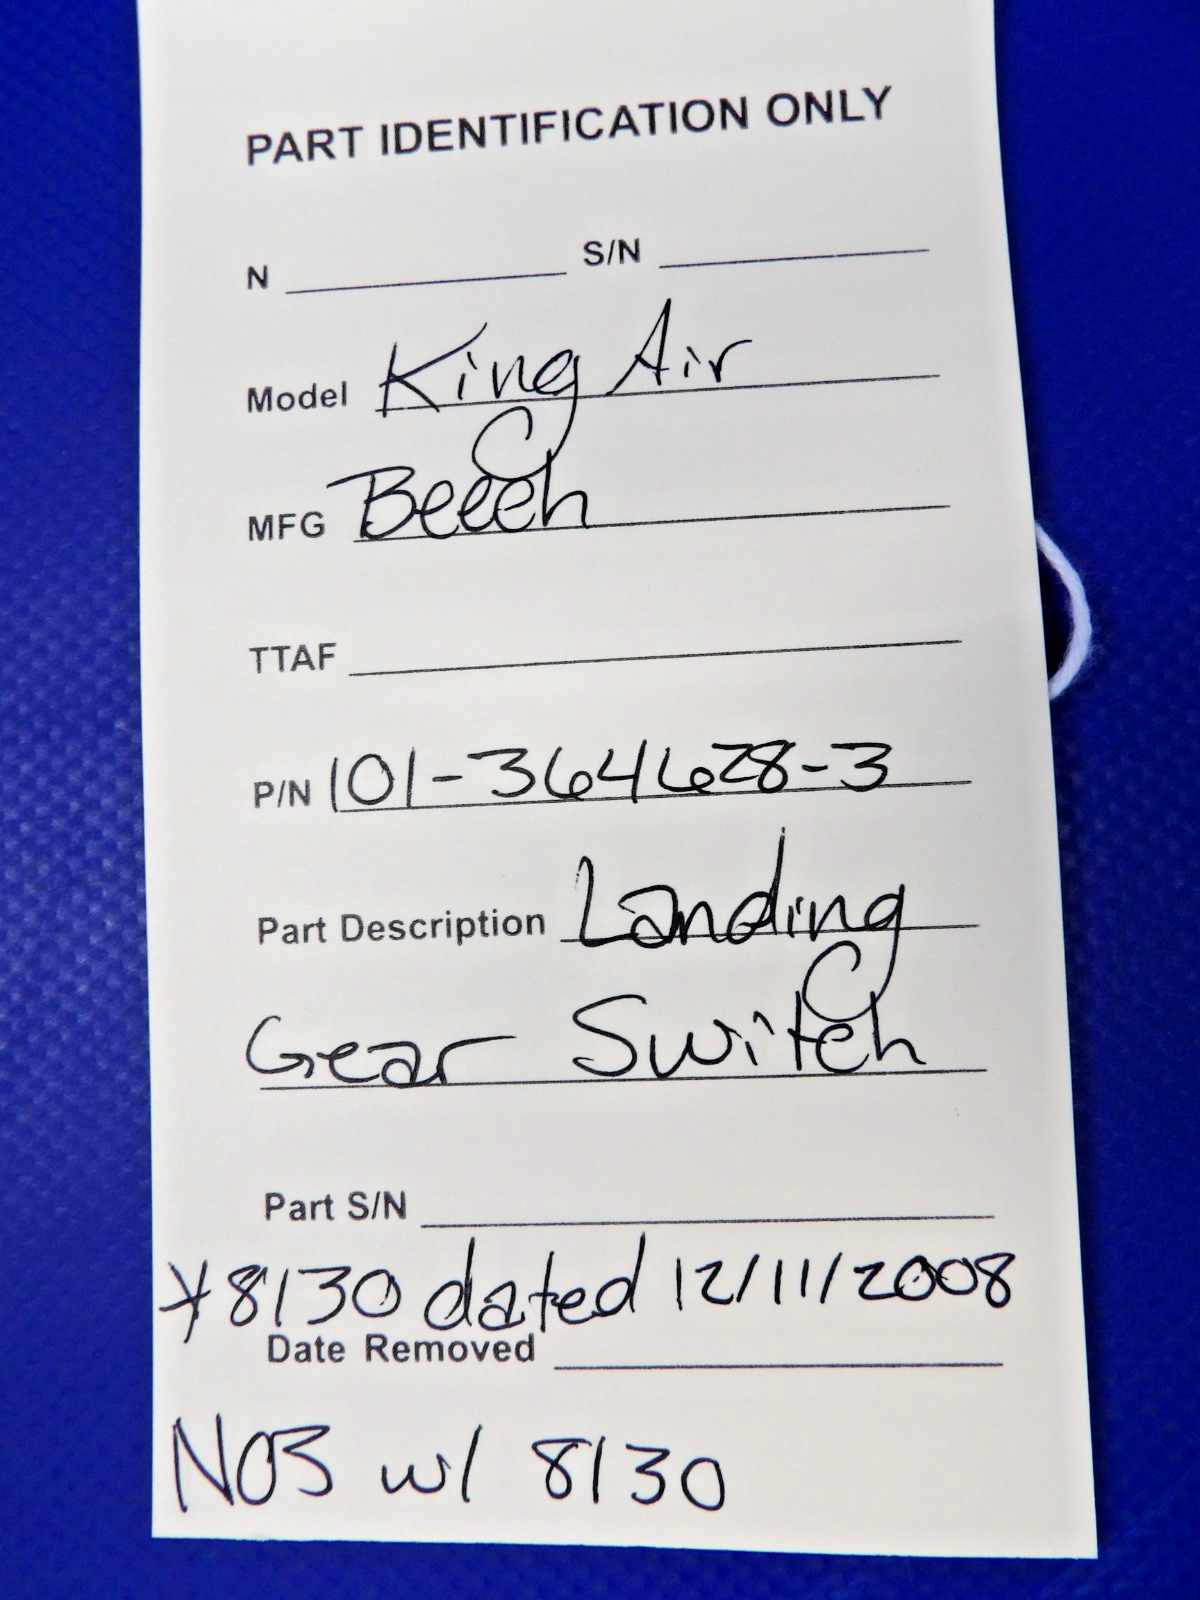 PART IDENTIFICATION ONLY
N S/N
Model King Air
MFG Beech
TTAF
P/N 101-364628-3
Part Description Landing
Gear Switch
Part S/N
*8130 dated 12/11/2008
Date Removed
NOS w/ 8130